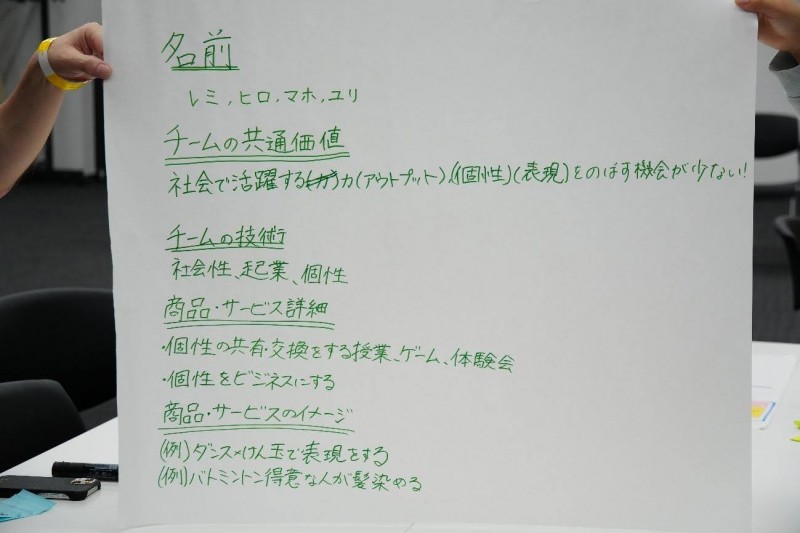 名前
レミ,ヒロ,マホ,ユリ
チームの共通価値
社会で活躍する力(アウトプット)、(個性)(表現)をのばす機会が少ない!
チームの技術
社会性、起業、個性
商品・サービス詳細
・個性の共有・交換をする授業、ゲーム、体験会
・個性をビジネスにする
商品・サービスのイメージ
(例)ダンス×けん玉で表現をする
(例)バトミントン得意な人が髪染める